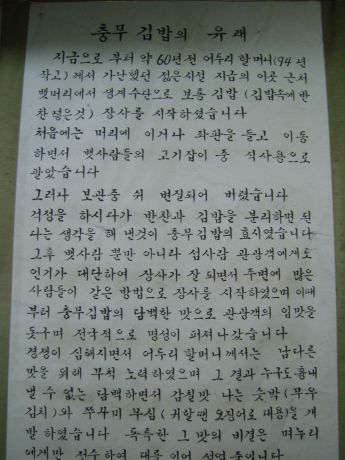 충무 김밥의 유래
지금으로 부터 약 60년전 어두리 할머니(94년
작고)께서 가난했던 젊은시절 지금의 이곳 근처
뱃머리에서 생계수단으로 보통 김밥 (김밥속에 반
찬 넣은것) 장사를 시작하셨습니다
처음에는 머리에 이거나 좌판을 들고 이동
하면서 뱃사람들의 고기잡이 중 식사용으로
팔았습니다
그러나 보관중 쉬 변질되어 버렸습니다
걱정을 하시다가 반찬과 김밥을 분리하면 된
다는 생각을 해 낸것이 충무김밥의 효시였습니다
그후 뱃사람 뿐만 아니라 섬사람 관광객에게도
인기가 대단하여 장사가 잘 되면서 주변에 많은
사람들이 같은 방법으로 장사를 시작하였으며 이때
부터 충무김밥의 담백한 맛으로 관광객의 입맛을
돋구며 전국적으로 명성이 퍼져나갔습니다
경쟁이 심해지면서 어두리 할머니께서는 남다른
맛을 위해 무척 노력하였으며 그 결과 누구도 흉내
낼 수 없는 담백하면서 감칠맛 나는 숙박 (무우
김치)와 쭈꾸미 무침 (귀할땐 오징어로 대용)을 개
발 하였습니다 독특한 그 맛의 비결은 며누리
에게만 전수하여 대를 이어